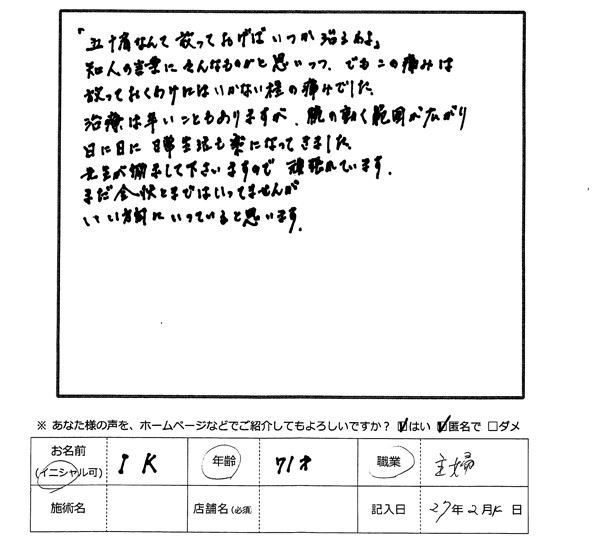 「五十肩なんて放っておけばいつか治るわよ」
知人の言葉にそんなものかと思いつつ、でもこの痛みは
放っておくわけにはいかない程の痛みでした
治療は辛いこともありますが、腕の動く範囲が広がり
日に日に日常生活も楽になってきました
先生が励まして下さいますので頑張れています.
まだ全快とまではいってませんが
いい方向にいっていると思います.
※ あなた様の声を、ホームページなどでご紹介してもよろしいですか? ☑はい ☑匿名で □ダメ
お名前 (イニシャル可) I K 年齢 71才 職業 主婦
施術名 店舗名(必須) 記入日 27年2月 日